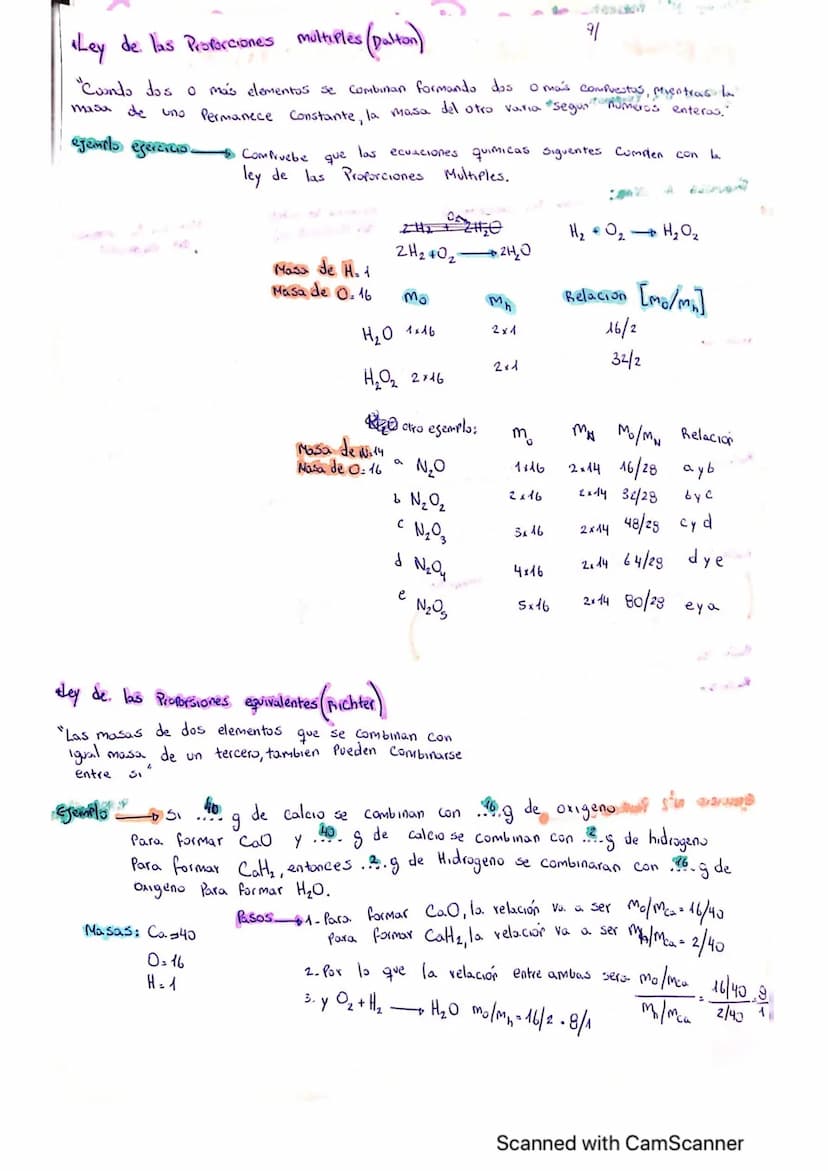 9/
Ley de las Proporciones múltiples (Dalton)
"Cuando dos o más elementos se combinan formando dos o más compuestos, mientras la
masa de uno permanece constante, la masa del otro varia "según" números enteros."
ejemplo ejercicio → Compruebe que las ecuaciones químicas siguentes cumplen con la
ley de las Proporciones Multiples.
2H₂ + O₂ → 2H₂O H₂ + O₂ → H₂O₂
Masa de H = 1
Masa de O = 16 mo mh Relación [mo/mh]
H₂O 1x16 2x1 16/2
H₂O₂ 2x16 2x1 32/2
otro ejemplo: mo mN mo/mN Relación
Masa de N = 14
Masa de O = 16 a N₂O 1x16 2x14 16/28 a y b
b N₂O₂ 2x16 2x14 32/28 b y c
c N₂O₃ 3x16 2x14 48/28 c y d
d N₂O₄ 4x16 2x14 64/28 d y e
e N₂O₅ 5x16 2x14 80/28 e y a
Ley de las Proporsiones equivalentes (Richter)
"Las masas de dos elementos que se combinan con
igual masa de un tercero, tambien pueden combinarse
entre si"
Ejemplo → Si ..40.. g de calcio se combinan con ..16.. g de oxigeno
Para formar CaO y ..40.. g de calcio se combinan con ..2.. g de hidrogeno
Para formar CaH₂, entonces ..2.. g de Hidrogeno se combinaran con ..16.. g de
oxigeno para formar H₂O.
Pasos → 1- Para formar CaO, la relación va a ser mo/mca = 16/40
Masas: Ca = 40 Para formar CaH₂, la relación va a ser mh/mca = 2/40
O = 16
H = 1 2. Por lo que la relación entre ambas sera mo/mca / mh/mca = 16/40 / 2/40 = 8/1
3. y O₂ + H₂ → H₂O mo/mh = 16/2 = 8/1
Scanned with CamScanner